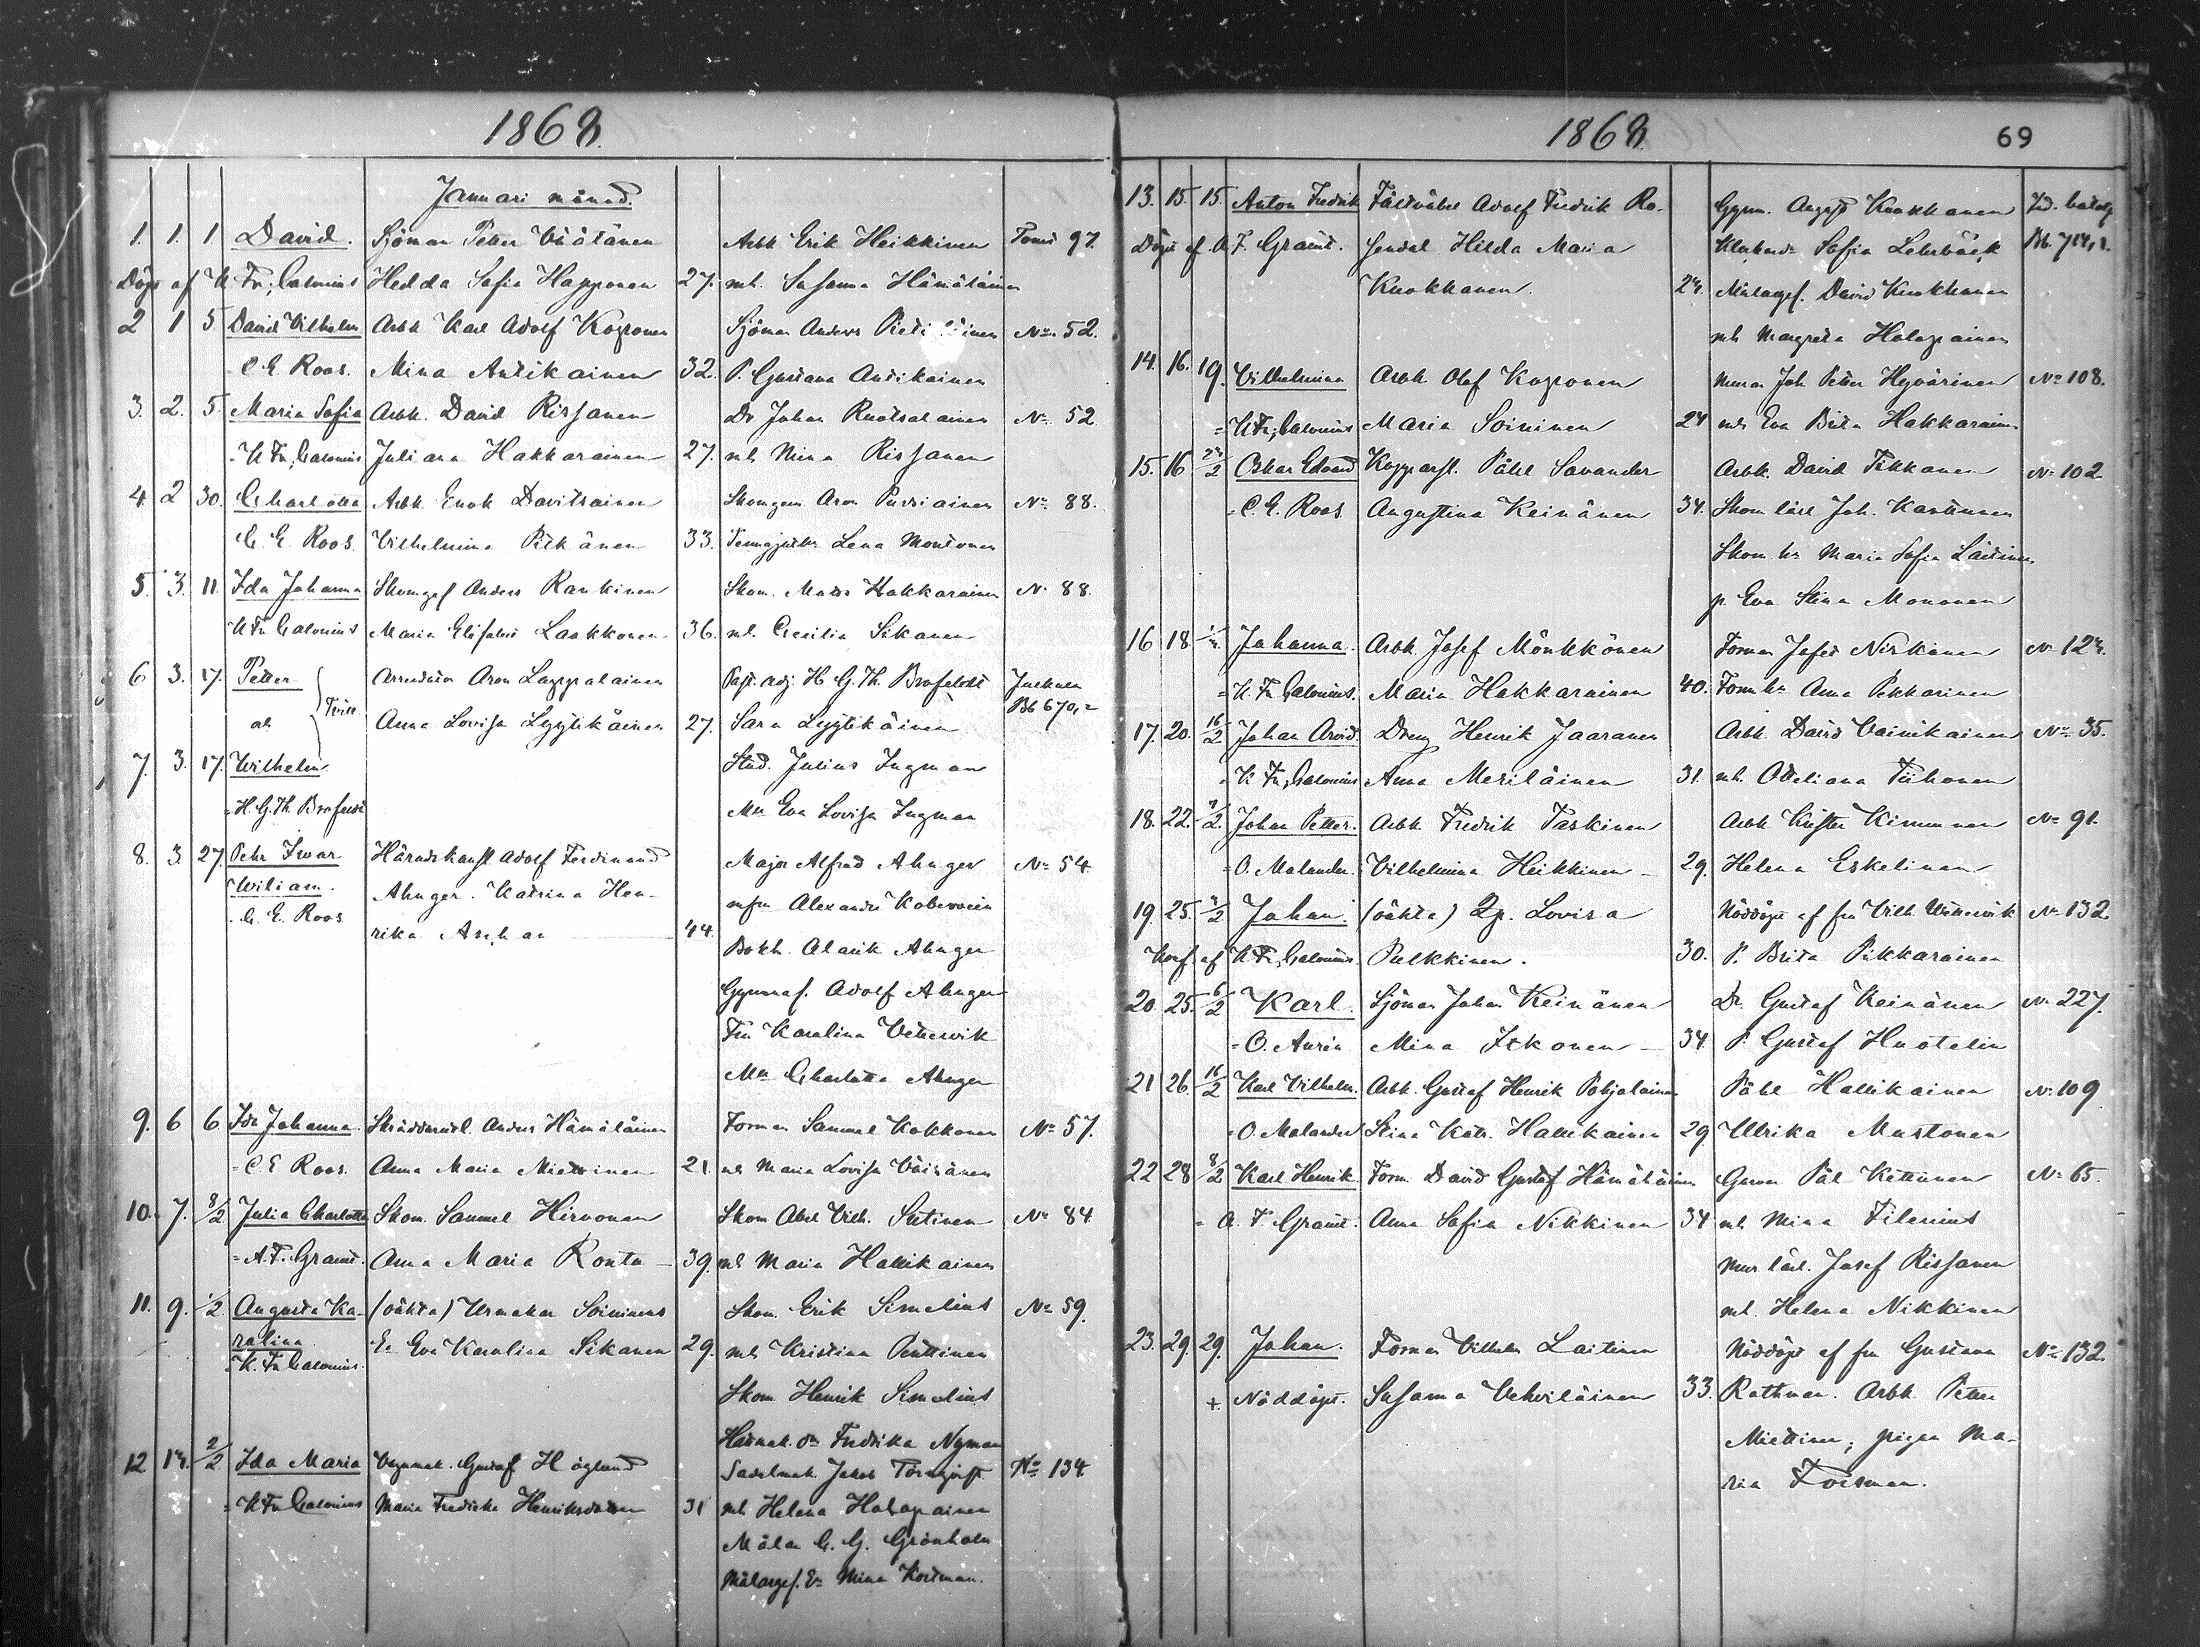 1868.
Januari månad.
1. 1. 1 David. Sjöman Petter Väätänen Arbk Erik Heikkinen Tomt 97.
Döpt af K. Fr. Calonius Hedda Sofia Happonen 27. mh. Susanna Hämäläinen
2 1 5 David Vilhelm Arbk Karl Adolf Kopponen Sjöman Anders No 52.
C. E. Roos. Mina Antikainen 32. P. Gustava Antikainen
3. 2. 5. Maria Sofia Arbk. David Rissanen Dr Johan Ruotsalainen No 52
K Fr. Calonius Juliana Hakkarainen 27. mh Mina Rissanen
4. 2 30. Charlotta Arbk Enok Davitsainen Skomgesn Aron Pursiainen No 88.
C. E. Roos. Vilhelmina Pitkänen 33. Lena Montonen
5. 3. 11. Ida Johanna Skomgef Anders Rankinen Skom. Matts Hakkarainen No 88.
K Fr Calonius Maria Elisabet Laakkonen 36. mh. Cecilia Sikanen
6 3. 17. Petter Arrendator Aron Lappalainen Past. adj. H. G. Th. Brofeldt
Bb 670,2
och Tvill. Anna Lovisa Lyytikäinen 27. Sara Lyytikäinen
7. 3. 17. Wilhelm Stud. Julius Ingman
H. G. Th. Brofeldt Mll Eva Lovisa Ingman
8. 3. 27. Petr Ivar Häradskansl Adolf Ferdinand Major Alfred Ahnger No 54.
Wiliam. Ahnger. Katrina Hen- Alexandr
C. E. Roos rika Aschan 44. Bokh. Alarik Ahnger
Gymnas. Adolf Ahnger
Fru Karolina Vetervik
Mll Charlotta Ahnger
9. 6 6 Ida Johanna Skräddaremäst. Anders Hämäläinen Forman Samuel Kokkonen No 57.
C. E Roos. Anna Maria Miettinen 21. mh Maria Lovisa Väisänen
10. 7. 8/2 Julia Charlotta Skom. Samuel Hirvonen Skom Abel Vilh. Sutinen No 84
A. F. Granit. Anna Maria Rontu 39. mh Maria Hallikainen
11. 9. 1/2 Augusta Ka- (oäkta) Urmakar Soininens Skom. Erik Simelius No 59.
rolina Ea Eva Karolina Sikanen 29. mh Kristina Penttinen
K. Fr Calonius. Skom. Henrik Simelius
Fredrika Nyman
12 14. 2/2 Ida Maria Vagnmak. Gustaf Höglund Sadelmak. Jakob Törnqvist No 134
K Fr Calonius Maria Fredrika Henriksdotter 31 mh Helena Halapainen
Målar C. G. Grönholm
Målargef. Ea Mina Kortman.
1868. 69
13. 15. 15. Anton Fredrik Fältväbel Adolf Fredrik Ro- Gymn. August Kuokkanen
Döpt af A. F. Granit. sendal Hilda Maria Sofia Lehrbäck Bb. 714,2.
Kuokkanen. 24. Målargef. David Kuokkanen
mh Margreta Halapainen
14. 16. 19. Vilhelmina Arbk Olof Kopponen Murar Joh. Petter Hyvärinen No 108.
K Fr. Calonius Maria Soininen 24 mh Eva Brita Hakkarainen
15. 16 24/2 Oskar Edvard Kopparsl. Påhl Savander Arbk. David Tikkanen No 102
C. E. Roos. Augustina Keinänen 34. Skom lärl Joh. Karttunen
Skom hr Maria Sofia Laitinen
p. Eva Stina Mononen
16 18 Johanna Arbk Josef Mönkkönen Forman Josef Niskanen No 124.
K Fr Calonius. Maria Hakkarainen 40. Form hr Anna Pekkarinen
17. 20. 16/2 Johan Arvid. Dreng Henrik Jaaranen Arbk David Vainikainen No 35.
K. Fr. Calonius Anna Meriläinen 31. mh. Otteliana Tiihonen
18. 22. 7/2. Johan Petter. Arbk Fredrik Taskinen Arbk Krister Kinnunen No 91.
O. Malander. Vilhelmina Heikkinen 29. Helena Eskelinen
19. 25. 4/2 Johan. (oäkta) Qp. Lovisa Nöddöpt af fru Vilh. Wetervik No 132
Konf. af K Fr. Calonius. Pulkkinen. 30. P. Brita Pikkarainen
20. 25. 6/2 Karl. Sjöman Johan Keinänen Dr Gustaf Keinänen No 227.
O. Aurén Mina Itkonen 34. P. Gustaf Huotelin
21 26. 16/2 Karl Vilhelm. Arbk. Gustaf Henrik Pohjalainen Påhl Hallikainen No 109
O. Malander Stina Katr. Hallikainen 29 Ullrika Mustonen
22 28 8/2 Karl Henrik Form David Gustaf Hämäläinen Garvar Pål Kettunen No 65.
A. F. Granit. Anna Sofia Nikkinen 34 mh Mina Filenius
Mur lärl. Josef Rissanen
mh. Helena Nikkinen
23. 29. 29. Johan. Forman Vilhelm Laitinen Nöddöpt af fru Gustava No 132.
+. Nöddöpt. Susanna Vehviläinen 33. Rathman. Arbk. Petter
Miettinen, pigan Ma-
ria Forsman.